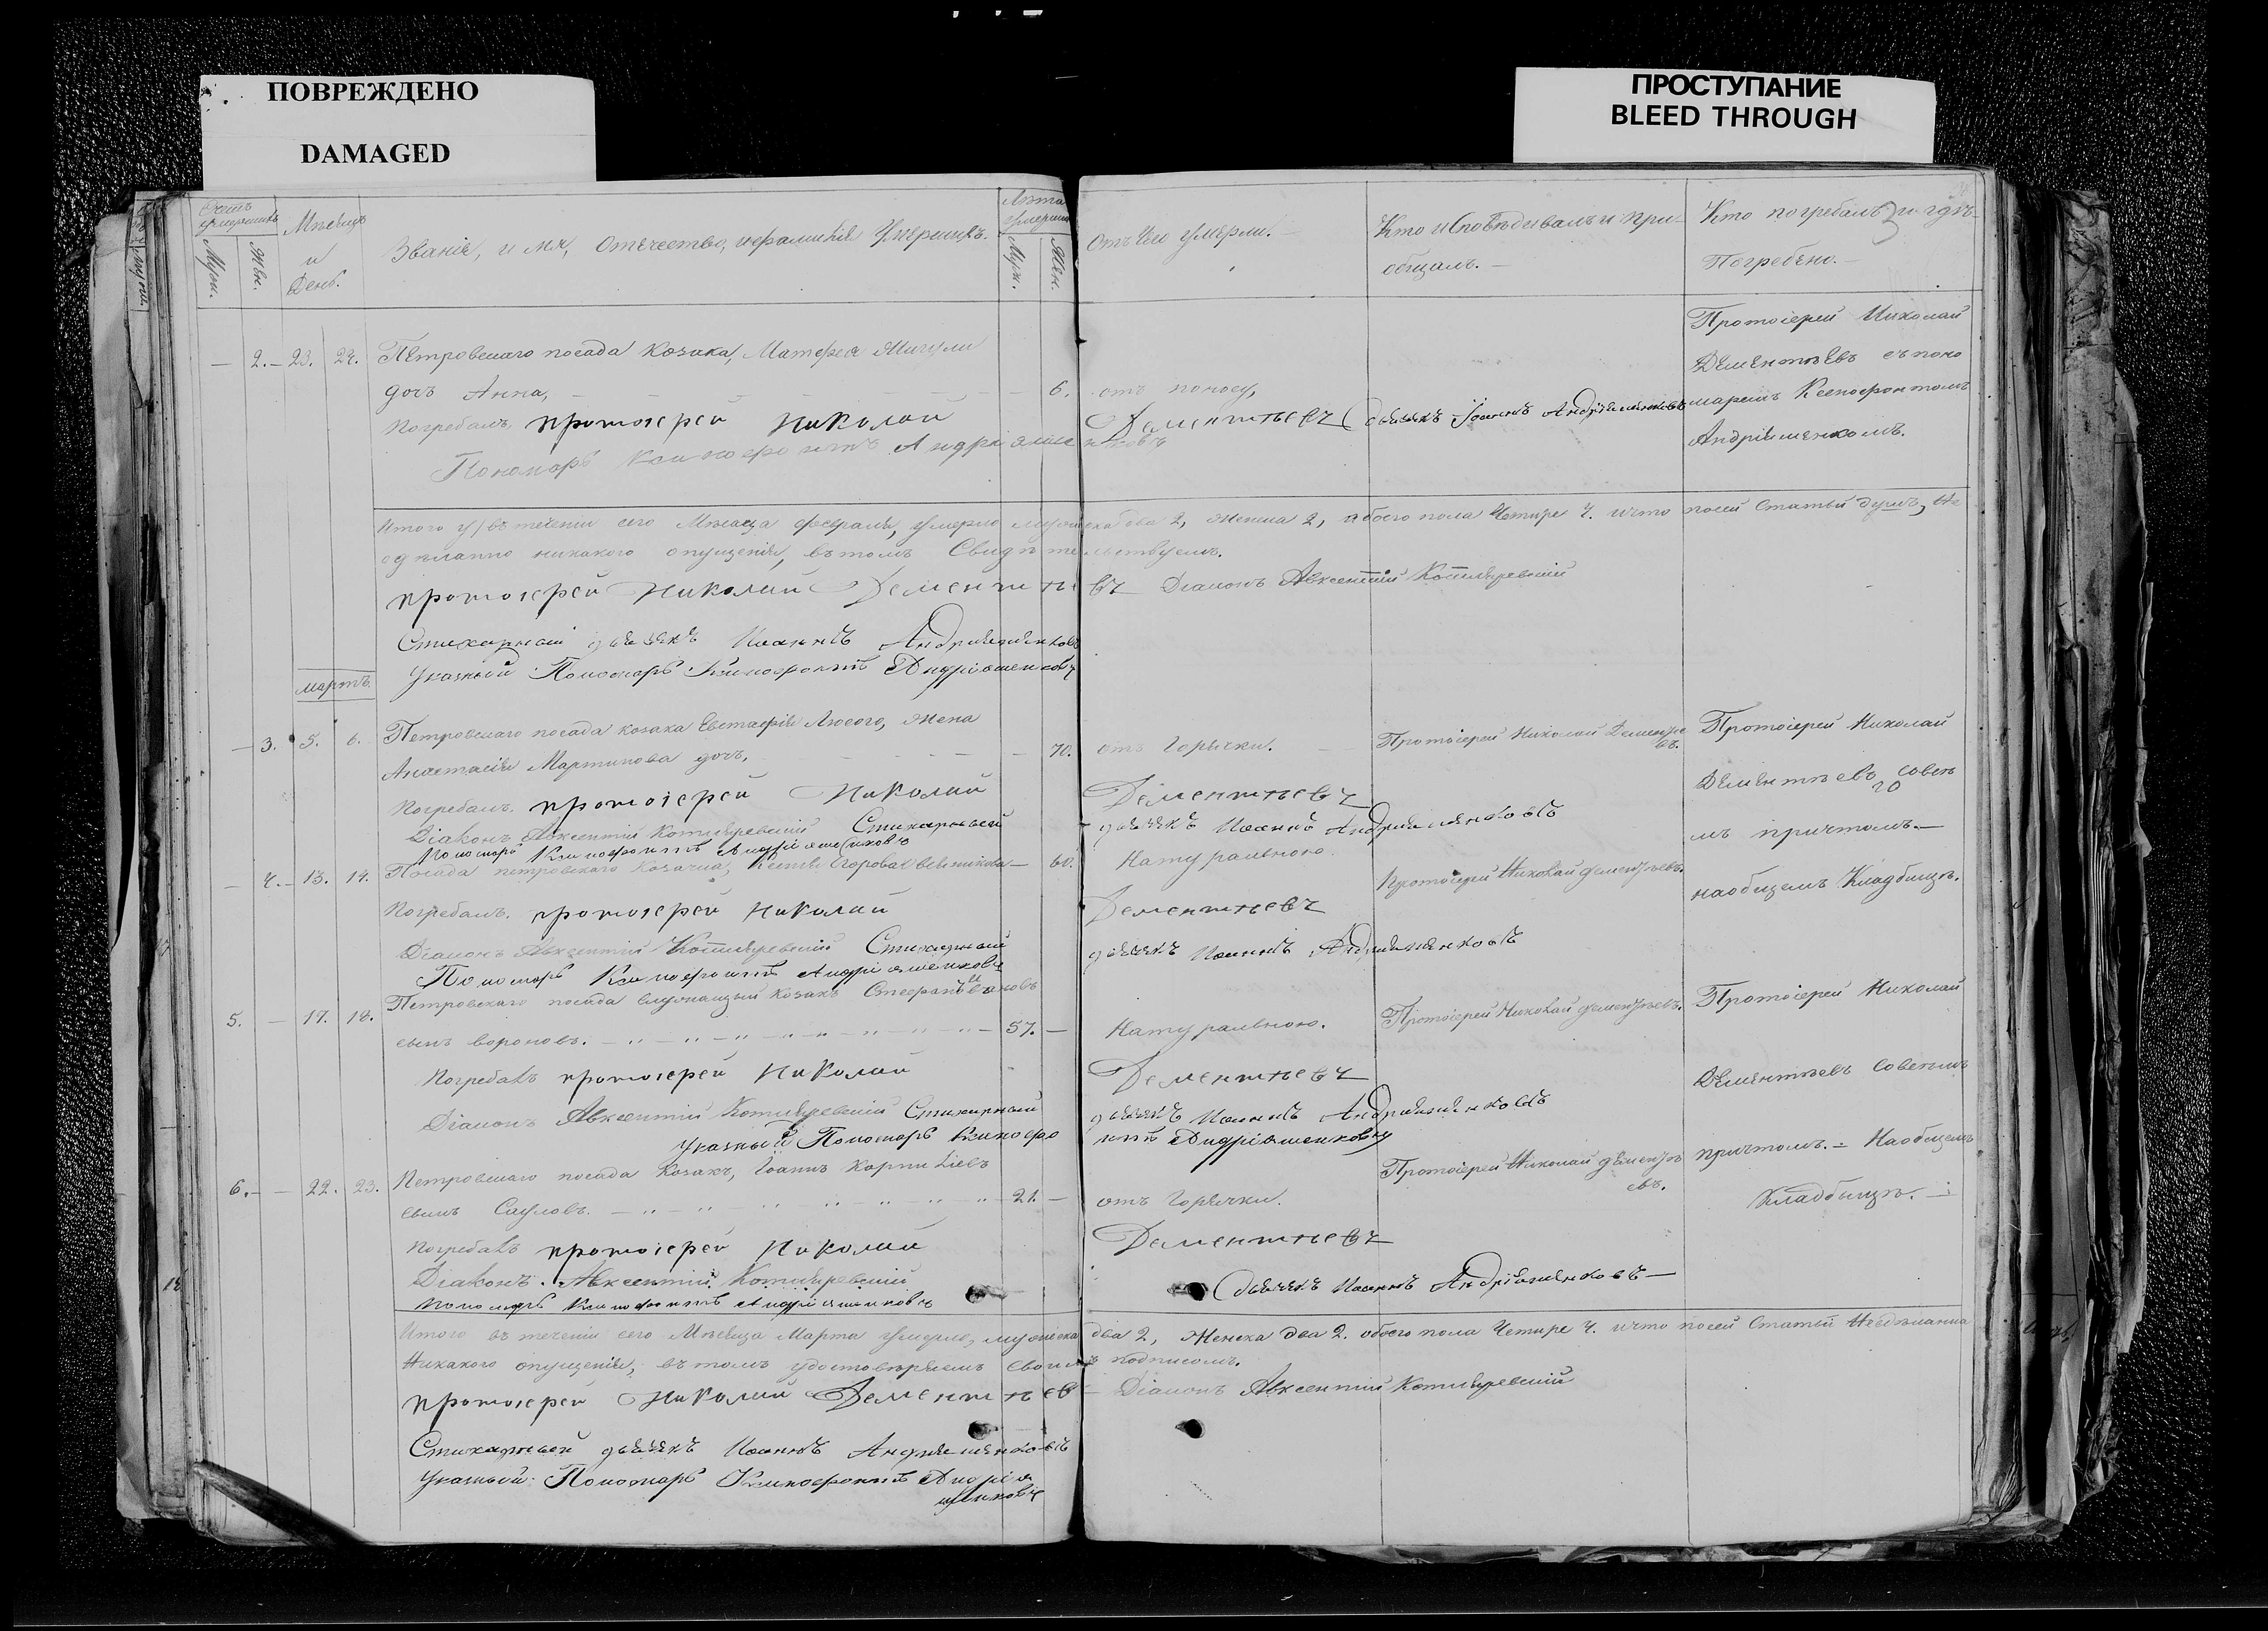 ПОВРЕЖДЕНО
DAMAGED
ПРОСТУПАНИЕ
BLEED THROUGH
Счетъ умершихъ
Муж.
Жен.
Мѣсяцъ и День.
Званіе, имя, отечество, ифамилія Умершихъ.
Лѣта умершихъ
Муж.
Жен.
Отъ чего умерли.
Кто исповѣдывалъ и прі-
общалъ.
Кто погребалъ и гдѣ
Погребено.
— 2. — 23. 24. Петровскаго посада Козака, Матфея
дочъ Анна, 6. отъ поносу,
Протоіерей Николай
Дементьевъ съ поно
маремъ Ксенофонтомъ
Андріяшенкомъ.
Погребалъ протоіерей Николай Дементьевъ дьячекъ Іоаннъ Андріяшенковъ
Пономарь Ксинофонтъ Андріяшенковъ
Итого въ теченіи сего Мѣсяца февраля, умерло мужеска два 2, женска 2, обоего пола Четыре 4. ичто посей статьи не
одѣланно никакого опущенія, въ томъ Свидѣтельствуемъ.
протоіерей Николай Дементьевъ Діаконъ Авксентій Котляревскій
Стихарный дьячекъ Иоаннъ Андріяшенковъ
Указный Пономарь Ксинофонтъ Андріяшенковъ
мартъ.
— 3. 5. 6. Петровскаго посада козака Евстафія жена
Анастасія Мартинова дочъ, 70. отъ Горячки. Протоіерей Николай Дементье
въ.
Протоіерей Николай
Дементьевъ совсѣ
мъ причтомъ —
наобщемъ Кладбищѣ.
Погребалъ протоіерей Николай Дементьевъ
Діаконъ Авксентій Котляревскій Стихарный дьячекъ Иоаннъ Андріяшенковъ
Пономарь Ксинофонтъ Андріяшенковъ
— 4. — 13. 14. Посада петровскаго Козачка, Егорова — 60. Натуральною. Протоіерей Николай Дементьевъ.
Погребалъ. протоіерей Николай Дементьевъ
Діаконъ Авксентій Котляревскій Стихарный дьячекъ Иоаннъ Андріяшенковъ
Пономарь Ксинофонтъ Андріяшенковъ
5. — 17. 18. Петровскаго посада служащый козакъ Стефанъ Ивановъ
сынъ Вороновъ. — 57. — Натуральною. Протоіерей Николай Дементьевъ.
Протоіерей Николай
Дементьевъ совсѣмъ
причтомъ. — Наобщемъ
Кладбищѣ. —
Погребалъ протоіерей Николай Дементьевъ
Діаконъ Авксентій Котляревскій Стихарный дьячекъ Иоаннъ Андріяшенковъ
Указный Пономарь Ксинофонтъ Андріяшенковъ
6. — — 22. 23. Петровскаго посада Козакъ, Іоаннъ Карпиліевъ
сынъ Сауловъ. — 21. — отъ Горячки. Протоіерей Николай Дементье
въ.
Погребалъ протоіерей Николай Дементьевъ
Діаконъ. Авксентій Котляревскій дьячекъ Иоаннъ Андріяшенковъ —
Пономарь Ксинофонтъ Андріяшенковъ
Итого въ теченіи сего Мѣсяца Марта умерло, мужеска два 2, Женска два 2. обоего пола Четыре 4. ичто посей Статьи Несдѣланна
Никакого опущенія, въ томъ удостовѣряемъ своимъ подписомъ.
протоіерей Николай Дементьев Діаконъ Авксентій Котляревскій
Стихарный дьячекъ Иоаннъ Андріяшенковъ
Указный Пономарь Ксинофонтъ Андрія
шенковъ